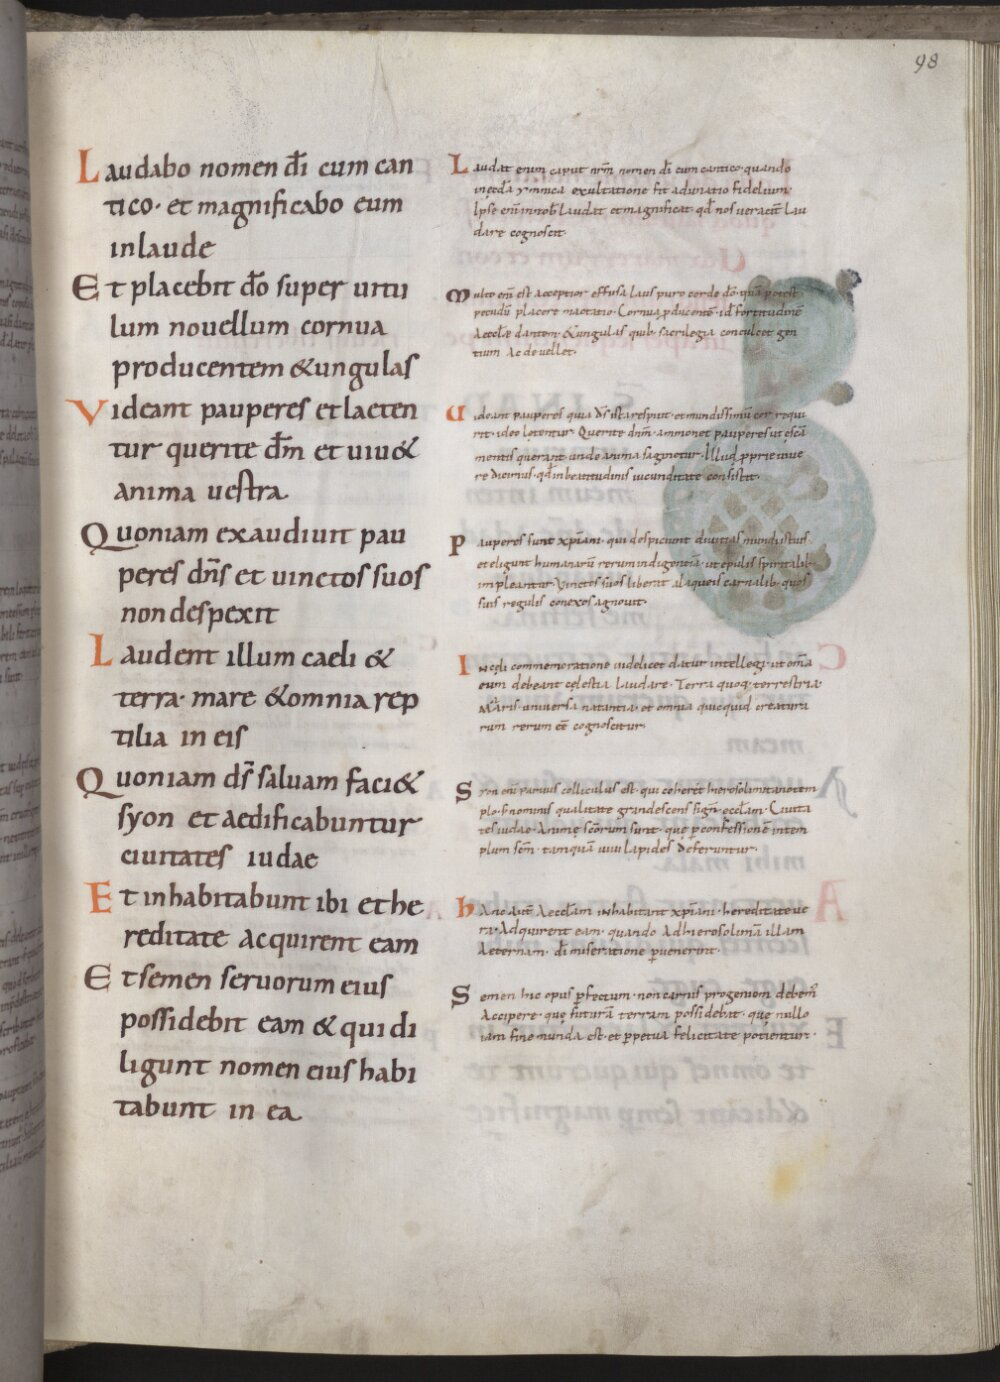 98
Laudabo nomen dī cum can
tico· et magnificabo eum
in laude
Et placebit dō super uitu
lum nouellum cornua
producentem & ungulas
Videant pauperes et laeten
tur querite dm̄ et uiu&
anima uestra
Quoniam exaudiuit pau
peres dn̄s et uinctos suos
non despexit
Laudent illum caeli &
terra· mare & omnia rep
tilia in eis
Quoniam ds̄ saluam faci&
syon et aedificabuntur
ciuitates iudae
Et inhabitabunt ibi et he
reditate acquirent eam
Et semen seruorum eius
possidebit eam & qui di
ligunt nomen eius habi
tabunt in ea
Laudat enim caput nrm̄ nomen dī cum cantico· quando
ymnica exultatione fit adunatio fidelium·
Ipse laudat et magnificat qd̄ nos ueracit̄ lau
dare cognoscit·
Multo eni̅ est acceptior effusa laus puro corde dō· quā potest
pecudū placere mactatio· Cornua ꝓducentē· id̄ fortitudinē
Aeccl̄ae dantem· & ungulas quib; sacrilegia conculcet gen
tium ac deuellet·
Uideant pauperes quia dn̄s ista respuit· et mundissimū cor requi
rit· ideo lętentur· Querite dnm̄· ammonet pauperes ut escā
mentis querant unde anima saginetur· Illud ꝓprie uiue
re dicimus· qd̄ in beatitudinis iucunditate consistit·
Pauperes sunt xp̄iani· qui despiciunt diuitias mundi istius·
et eligunt humanarū rerum indigentiā· ut epulis spiritalib;
impleantur· Vinctos suos liberat a laqueis carnalib; quos
suis regulis conexos agnouit·
In cęli commemoratione uidelicet datur intellegi· ut om̄a
eum debeant cęlestia laudare· Terra quoq; terrestria·
Maris· uniuersa natantia· et omnia quicquid creatura
rum rerum eē cognoscitur·
Syon eni̅ paruus colliculus est· qui coheret hierosolimitano tem
plo· s; nominis qualitate grandescens sign̄· eccl̄am· Ciuita
tes iudae· Animę scōrum sunt· quę ꝑ confessionē in tem
plum scm̄· tamquā uiui lapides deferuntur·
Hanc aut̄ aeccl̄am inhabitant xp̄iani· hereditate ue
ra· Adquirent eam· quando ad hierosolimā illam
aeternam· dī miseratione ꝑuenerint·
Semen hic opus ꝑfectum· non carnis progeniem debem̄
accipere· quę futurā terram possidebit· quę nullo
iam fine munda est· et ꝑpetua felicitate potientur·